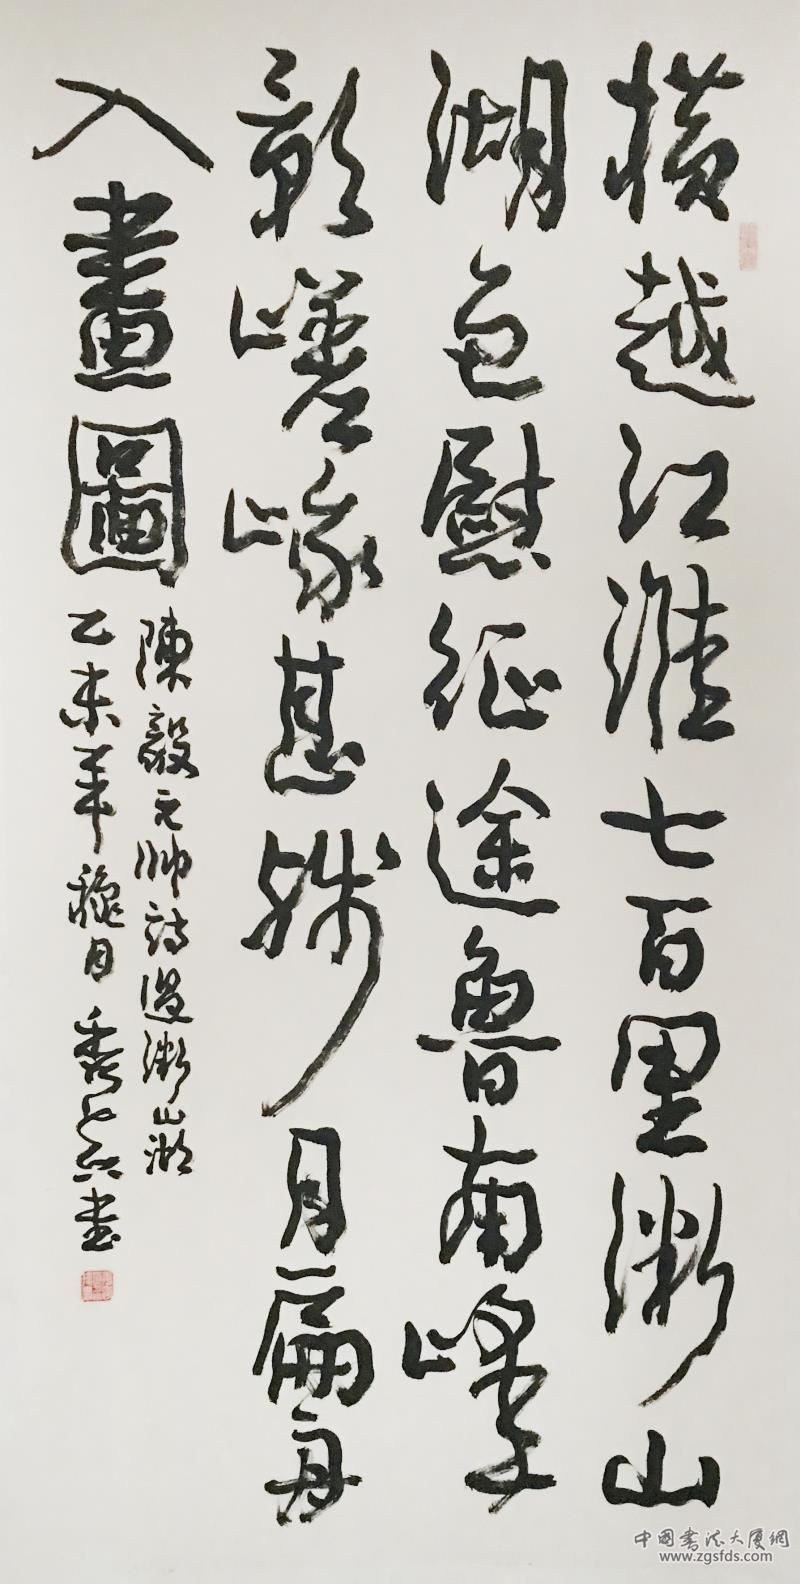 橫越江淮七百里微山
湖色慰征途魯南峰
影嵯峨甚殘月扁舟
入畫圖
陳毅元帥詩過微山湖
乙未年穐月書
中國書法大厦網
www.zgsfds.com